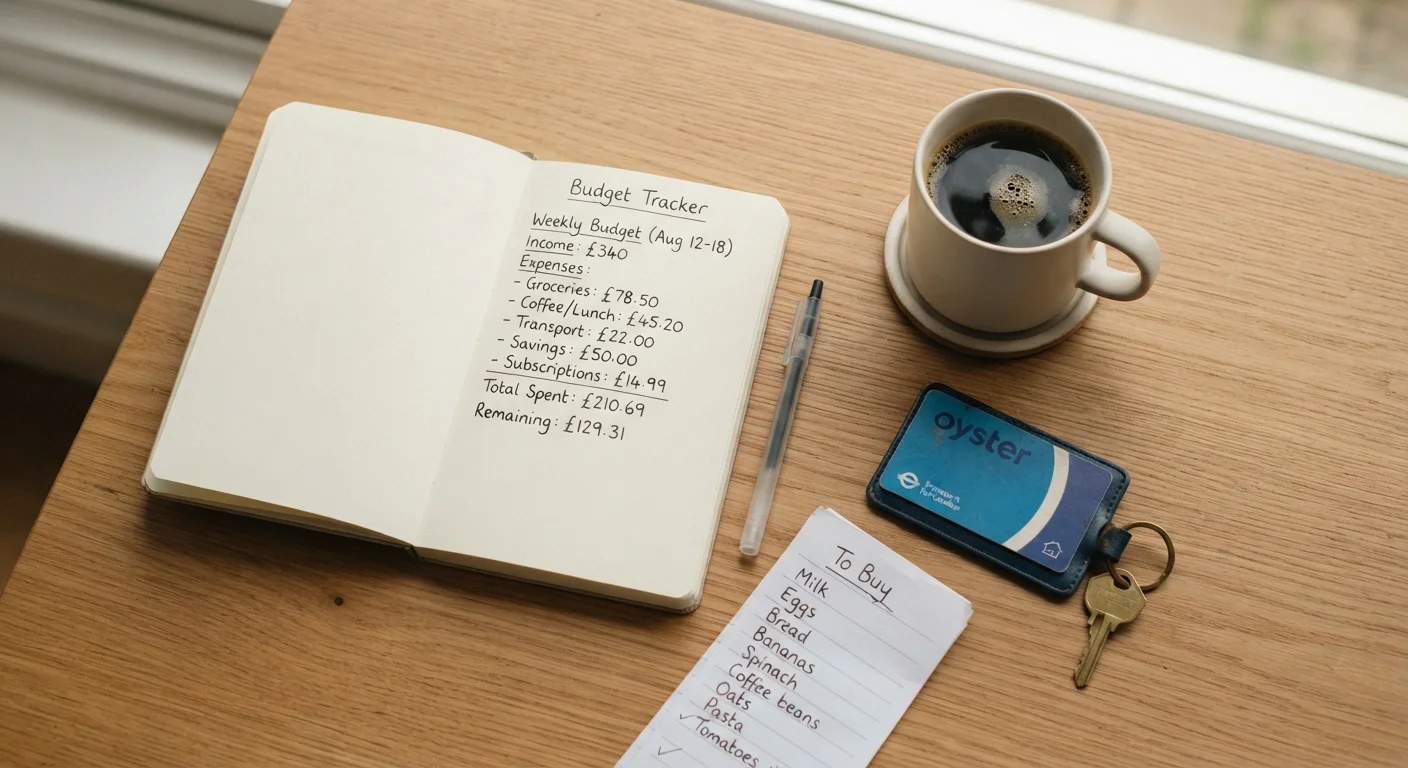 Budget Tracker
Weekly Budget (Aug 12-18)
Income: £340
Expenses:
- Groceries: £78.50
- Coffee/Lunch: £45.20
- Transport: £22.00
- Savings: £50.00
- Subscriptions: £14.99
Total Spent: £210.69
Remaining: £129.31
oyster
To Buy
Milk
Eggs
Bread
Bananas
Spinach
Coffee beans
Oats
Pasta
✓Tomatoes
✓